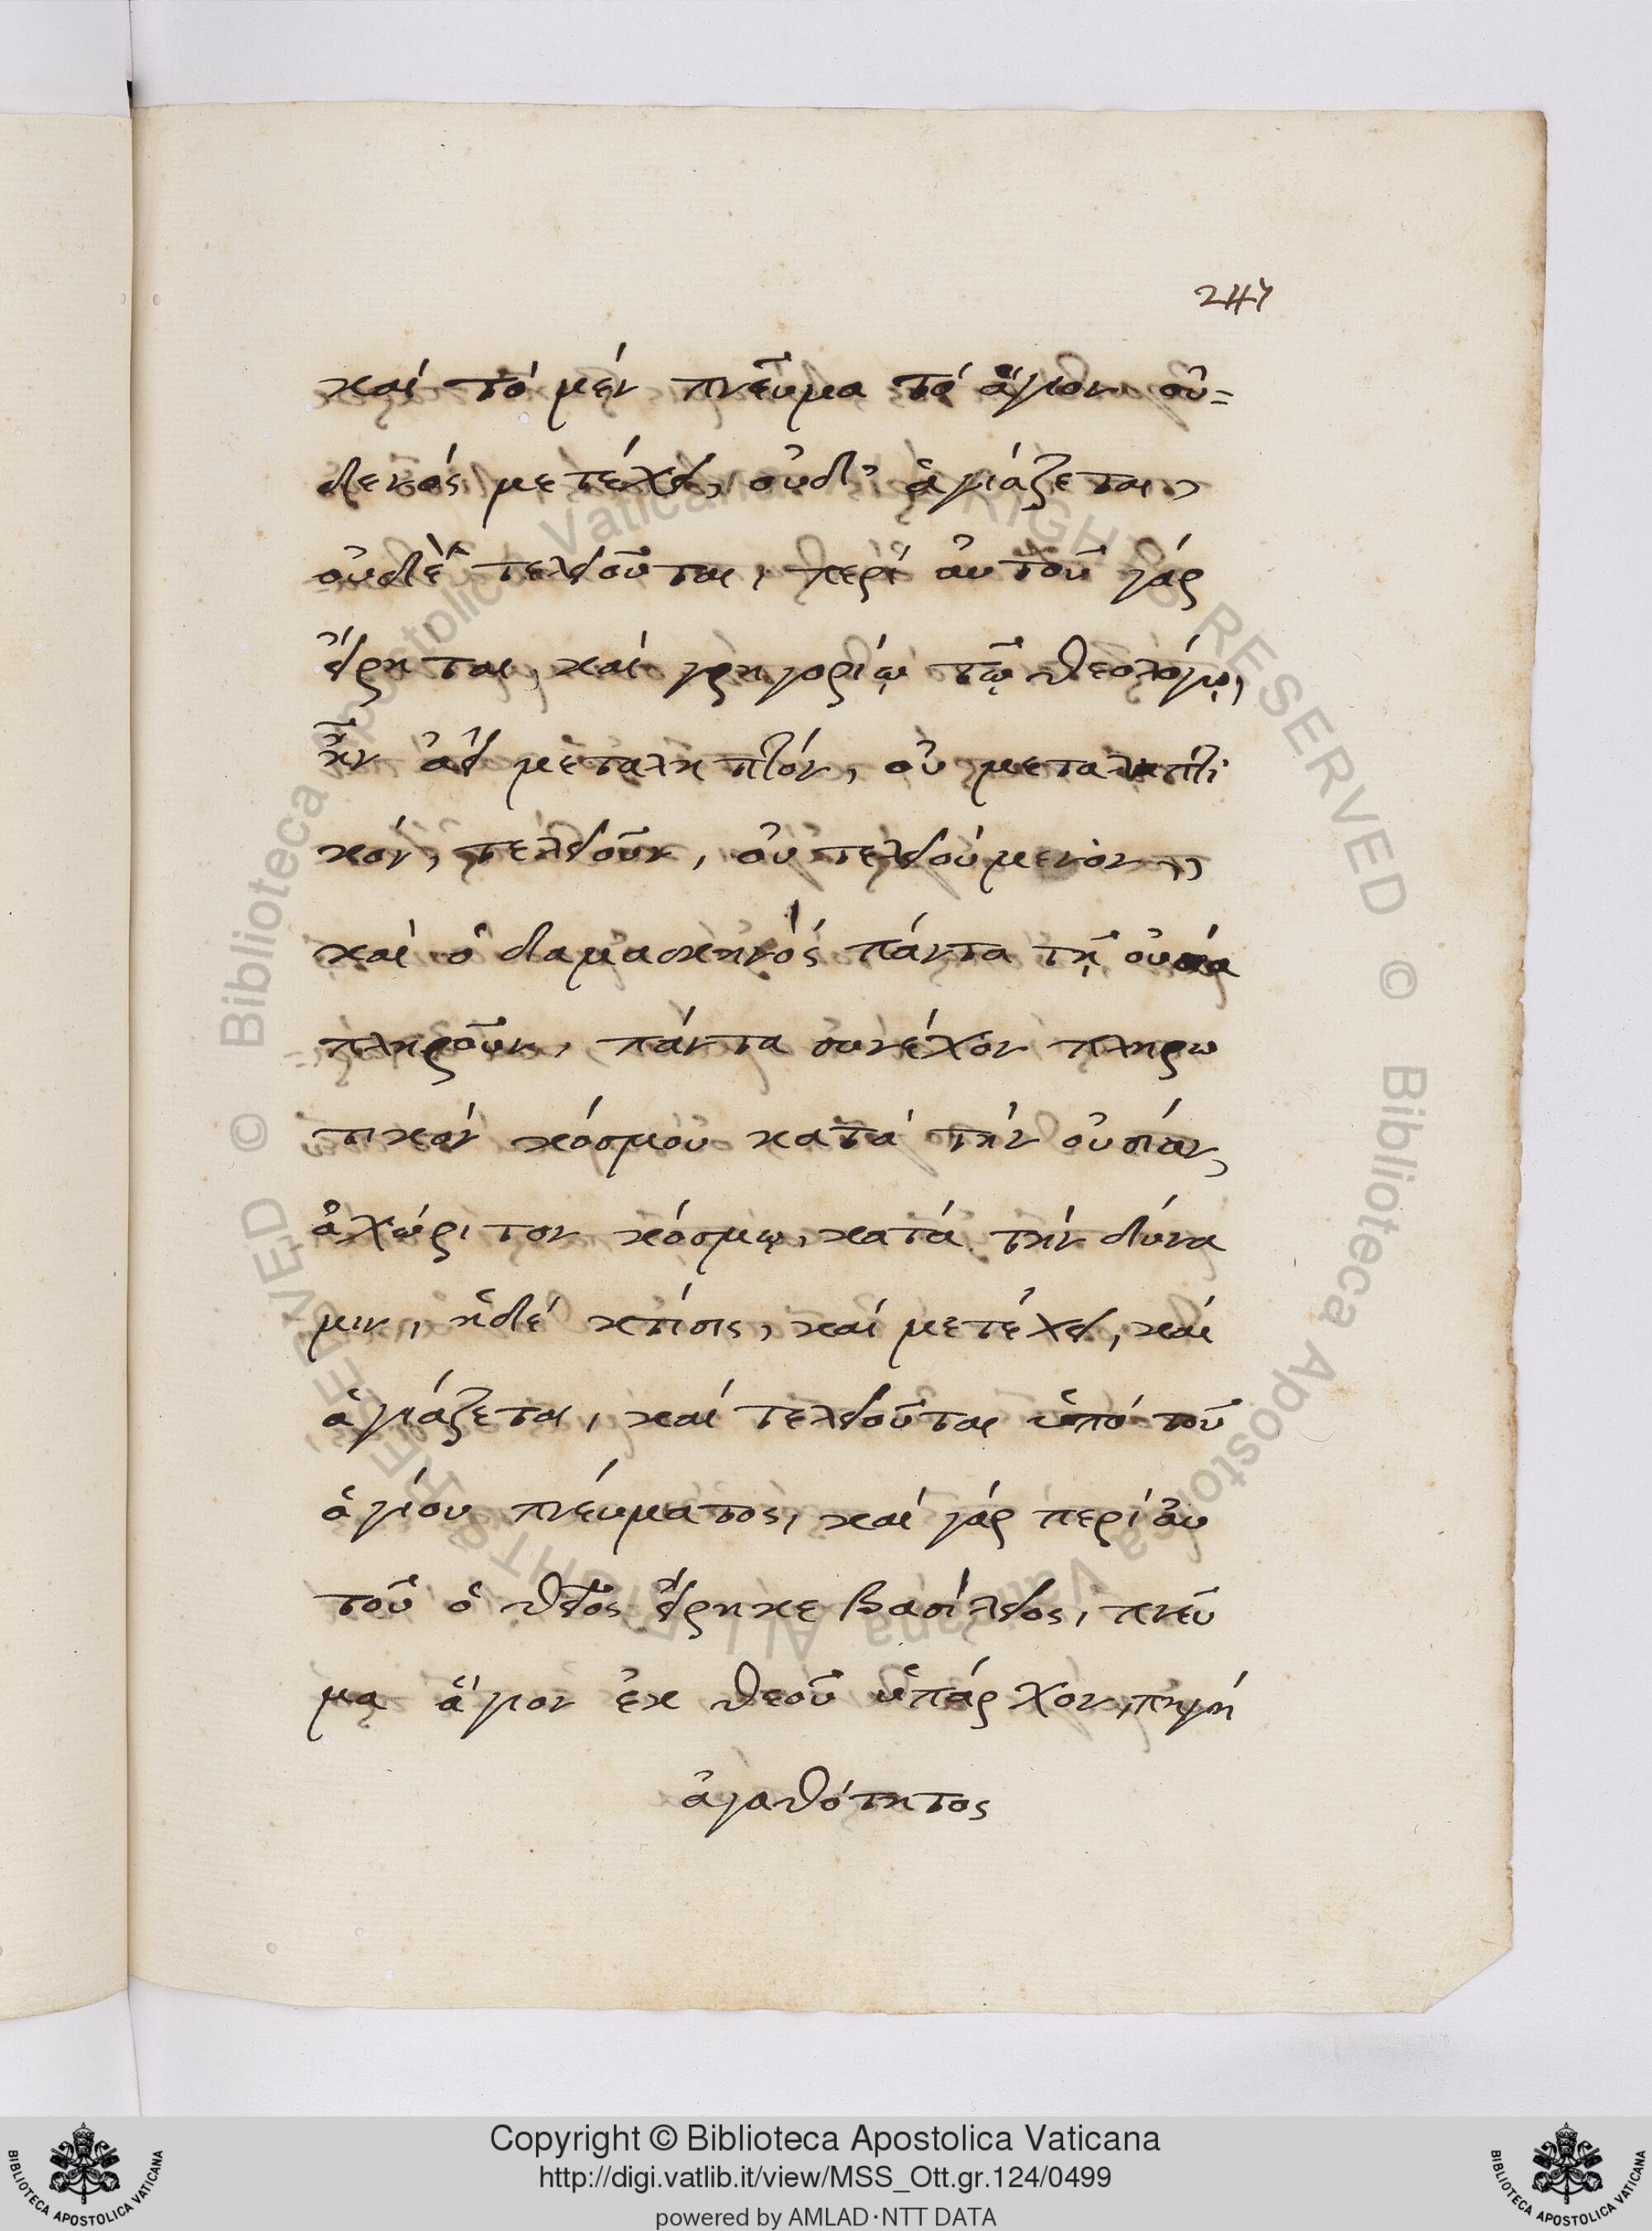 247
καί τό μέν πνεῦμα τό ἅγιον οὐ=
δενός μετέχει, οὐδ' ἁγιάζεται,
οὐδὲ τελειοῦται, περί αὐτοῦ γάρ
εἴρηται, καί γρηγορίῳ τῷ θεολόγῳ,
ἦν ἀεί μεταληπτόν, οὐ μεταληπτι
κόν, τελειοῦν, οὐ τελειούμενον,,
καί ὁ δαμασκηνός πάντα τῇ οὐσίᾳ
πληροῦν, πάντα συνέχον πληρω
τικόν κόσμου κατά τήν οὐσίαν,
ἀχώριτον κόσμῳ, κατά τήν δύνα
μιν, ἡ δέ κτίσις, καί μετέχει, καί
ἁγιάζεται, καί τελειοῦται ὑπό τοῦ
ἁγίου πνέυματος, καί γάρ περί αὐ
τοῦ ὁ θεῖος εἴρηκε βασίλειος, πνεῦ
μα ἅγιον ἐκ θεοῦ ὑπάρχον, πηγή
ἀγαθότητος
© Biblioteca Apostolica Vaticana ALL RIGHTS RESERVED
© Biblioteca Apostolica Vaticana ALL RIGHTS RESERVED
Copyright © Biblioteca Apostolica Vaticana
http://digi.vatlib.it/view/MSS_Ott.gr.124/0499
powered by AMLAD·NTT DATA
BIBLIOTECA APOSTOLICA VATICANA
BIBLIOTECA APOSTOLICA VATICANA